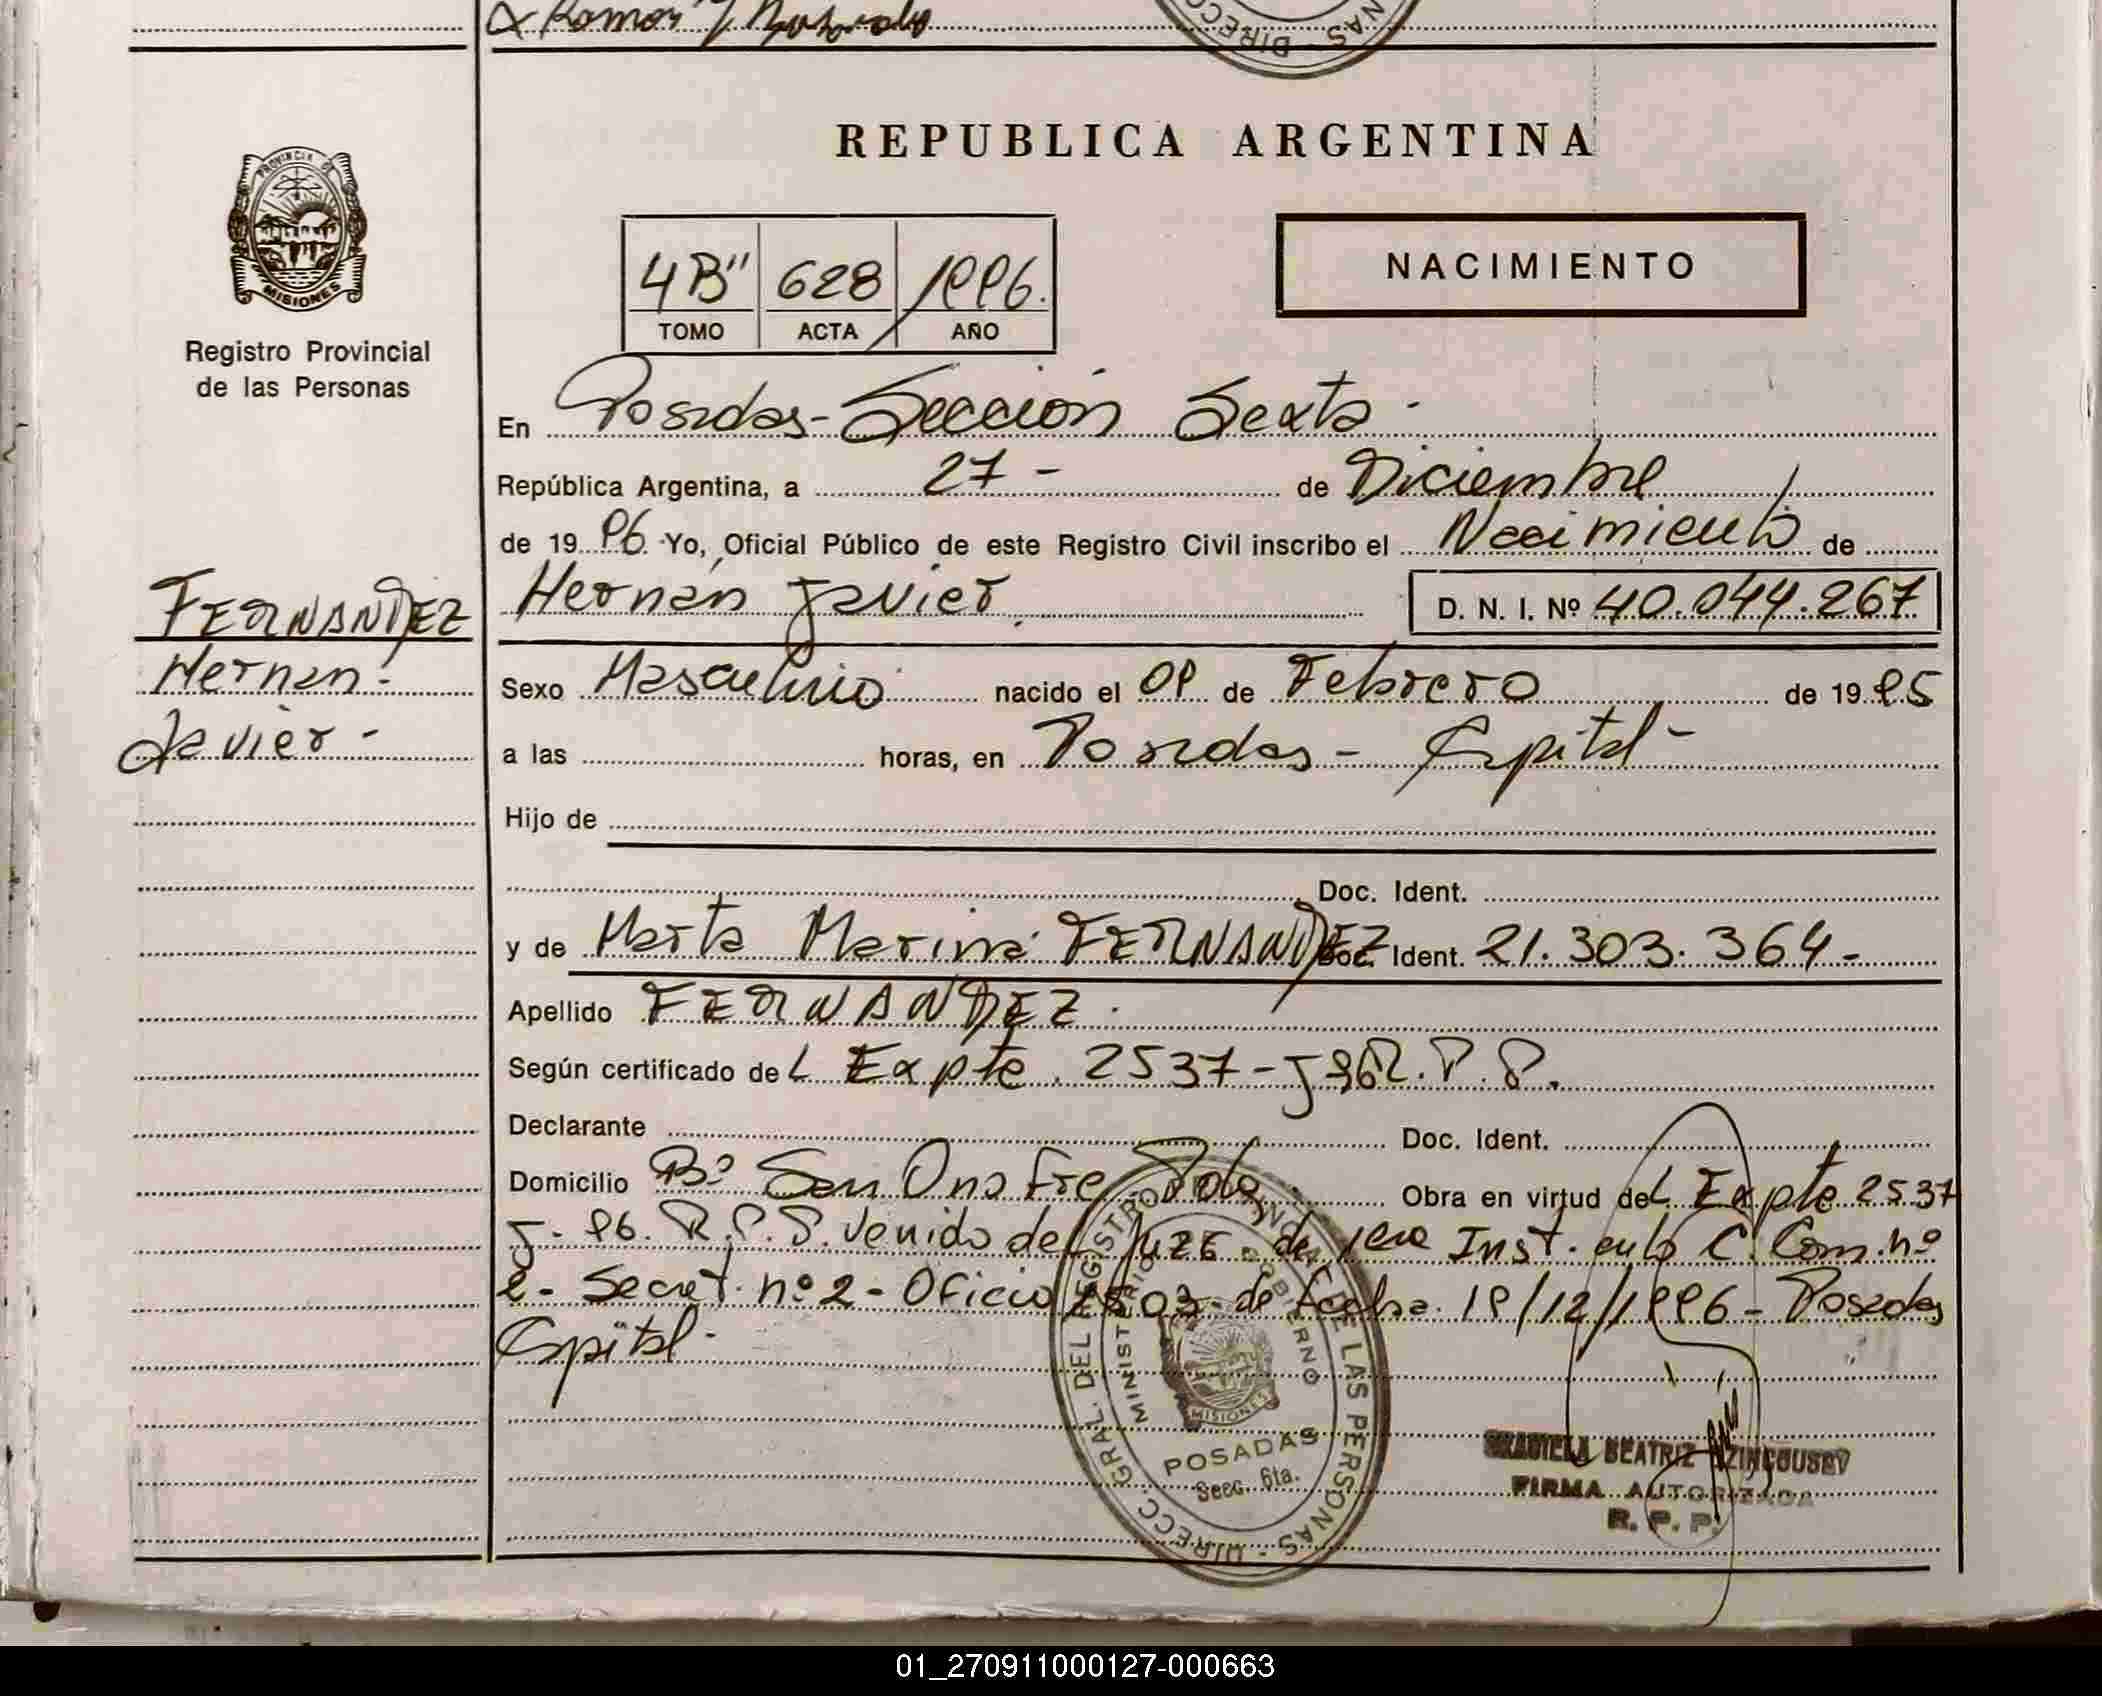 REPUBLICA ARGENTINA
PROVINCIA DE
MISIONES
Registro Provincial
de las Personas
4B" 628 1996.
TOMO ACTA AÑO
NACIMIENTO
En Posadas - Sección Sexta -
República Argentina, a 27 - de Diciembre
de 19 96. Yo, Oficial Público de este Registro Civil inscribo el Nacimiento de
Hernán Javier D. N. I. Nº 40.044.267
FERNANDEZ
Hernan -
Javier -
Sexo Masculino nacido el 09 de Febrero de 19 95
a las horas, en Posadas - Capital -
Hijo de
Doc. Ident.
y de Marta Marina FERNANDEZ Doc. Ident. 21.303.364 -
Apellido FERNANDEZ.
Según certificado de L Expte. 2537 - J 96 R.P.P.
Declarante Doc. Ident.
Domicilio Bº San Onofre Pdas. Obra en virtud de L Expte 2537
J - 96. R.P.P. venido del Juzg. de 1era Inst. en lo C. Com. nº
2 - Secret. nº 2 - Oficio de fecha 19/12/1996 - Posadas
Capital -
DIRECC. GRAL. DEL REGISTRO PROVINCIAL DE LAS PERSONAS
MINISTERIO DE GOBIERNO
MISIONES
POSADAS
Secc. 6ta.
GRACIELA BEATRIZ
FIRMA AUTORIZADA
R. P. P.
01_270911000127-000663